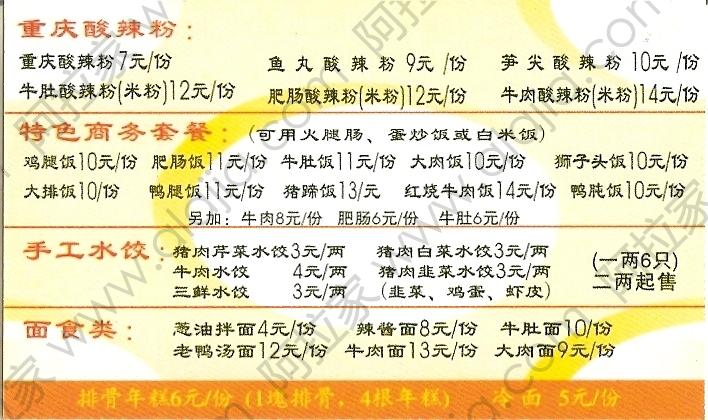 重庆酸辣粉:
重庆酸辣粉7元/份 鱼丸酸辣粉 9元/份 笋尖酸辣粉 10元/份
牛肚酸辣粉(米粉)12元/份 肥肠酸辣粉(米粉)12元/份 牛肉酸辣粉(米粉)14元/份
特色商务套餐: (可用火腿肠、蛋炒饭或白米饭)
鸡腿饭10元/份 肥肠饭11元/份 牛肚饭11元/份 大肉饭10元/份 狮子头饭10元/份
大排饭10/份 鸭腿饭11元/份 猪蹄饭13/元 红烧牛肉饭14元/份 鸭肫饭10元/份
另加: 牛肉8元/份 肥肠6元/份 牛肚6元/份
手工水饺: 猪肉芹菜水饺3元/两 猪肉白菜水饺3元/两 (一两6只)
牛肉水饺 4元/两 猪肉韭菜水饺3元/两 二两起售
三鲜水饺 3元/两 (韭菜、鸡蛋、虾皮)
面食类: 葱油拌面4元/份 辣酱面8元/份 牛肚面10/份
老鸭汤面12元/份 牛肉面13元/份 大肉面9元/份
排骨年糕6元/份 (1塊排骨，4根年糕) 冷面 5元/份
阿拉家 www.alajia.com